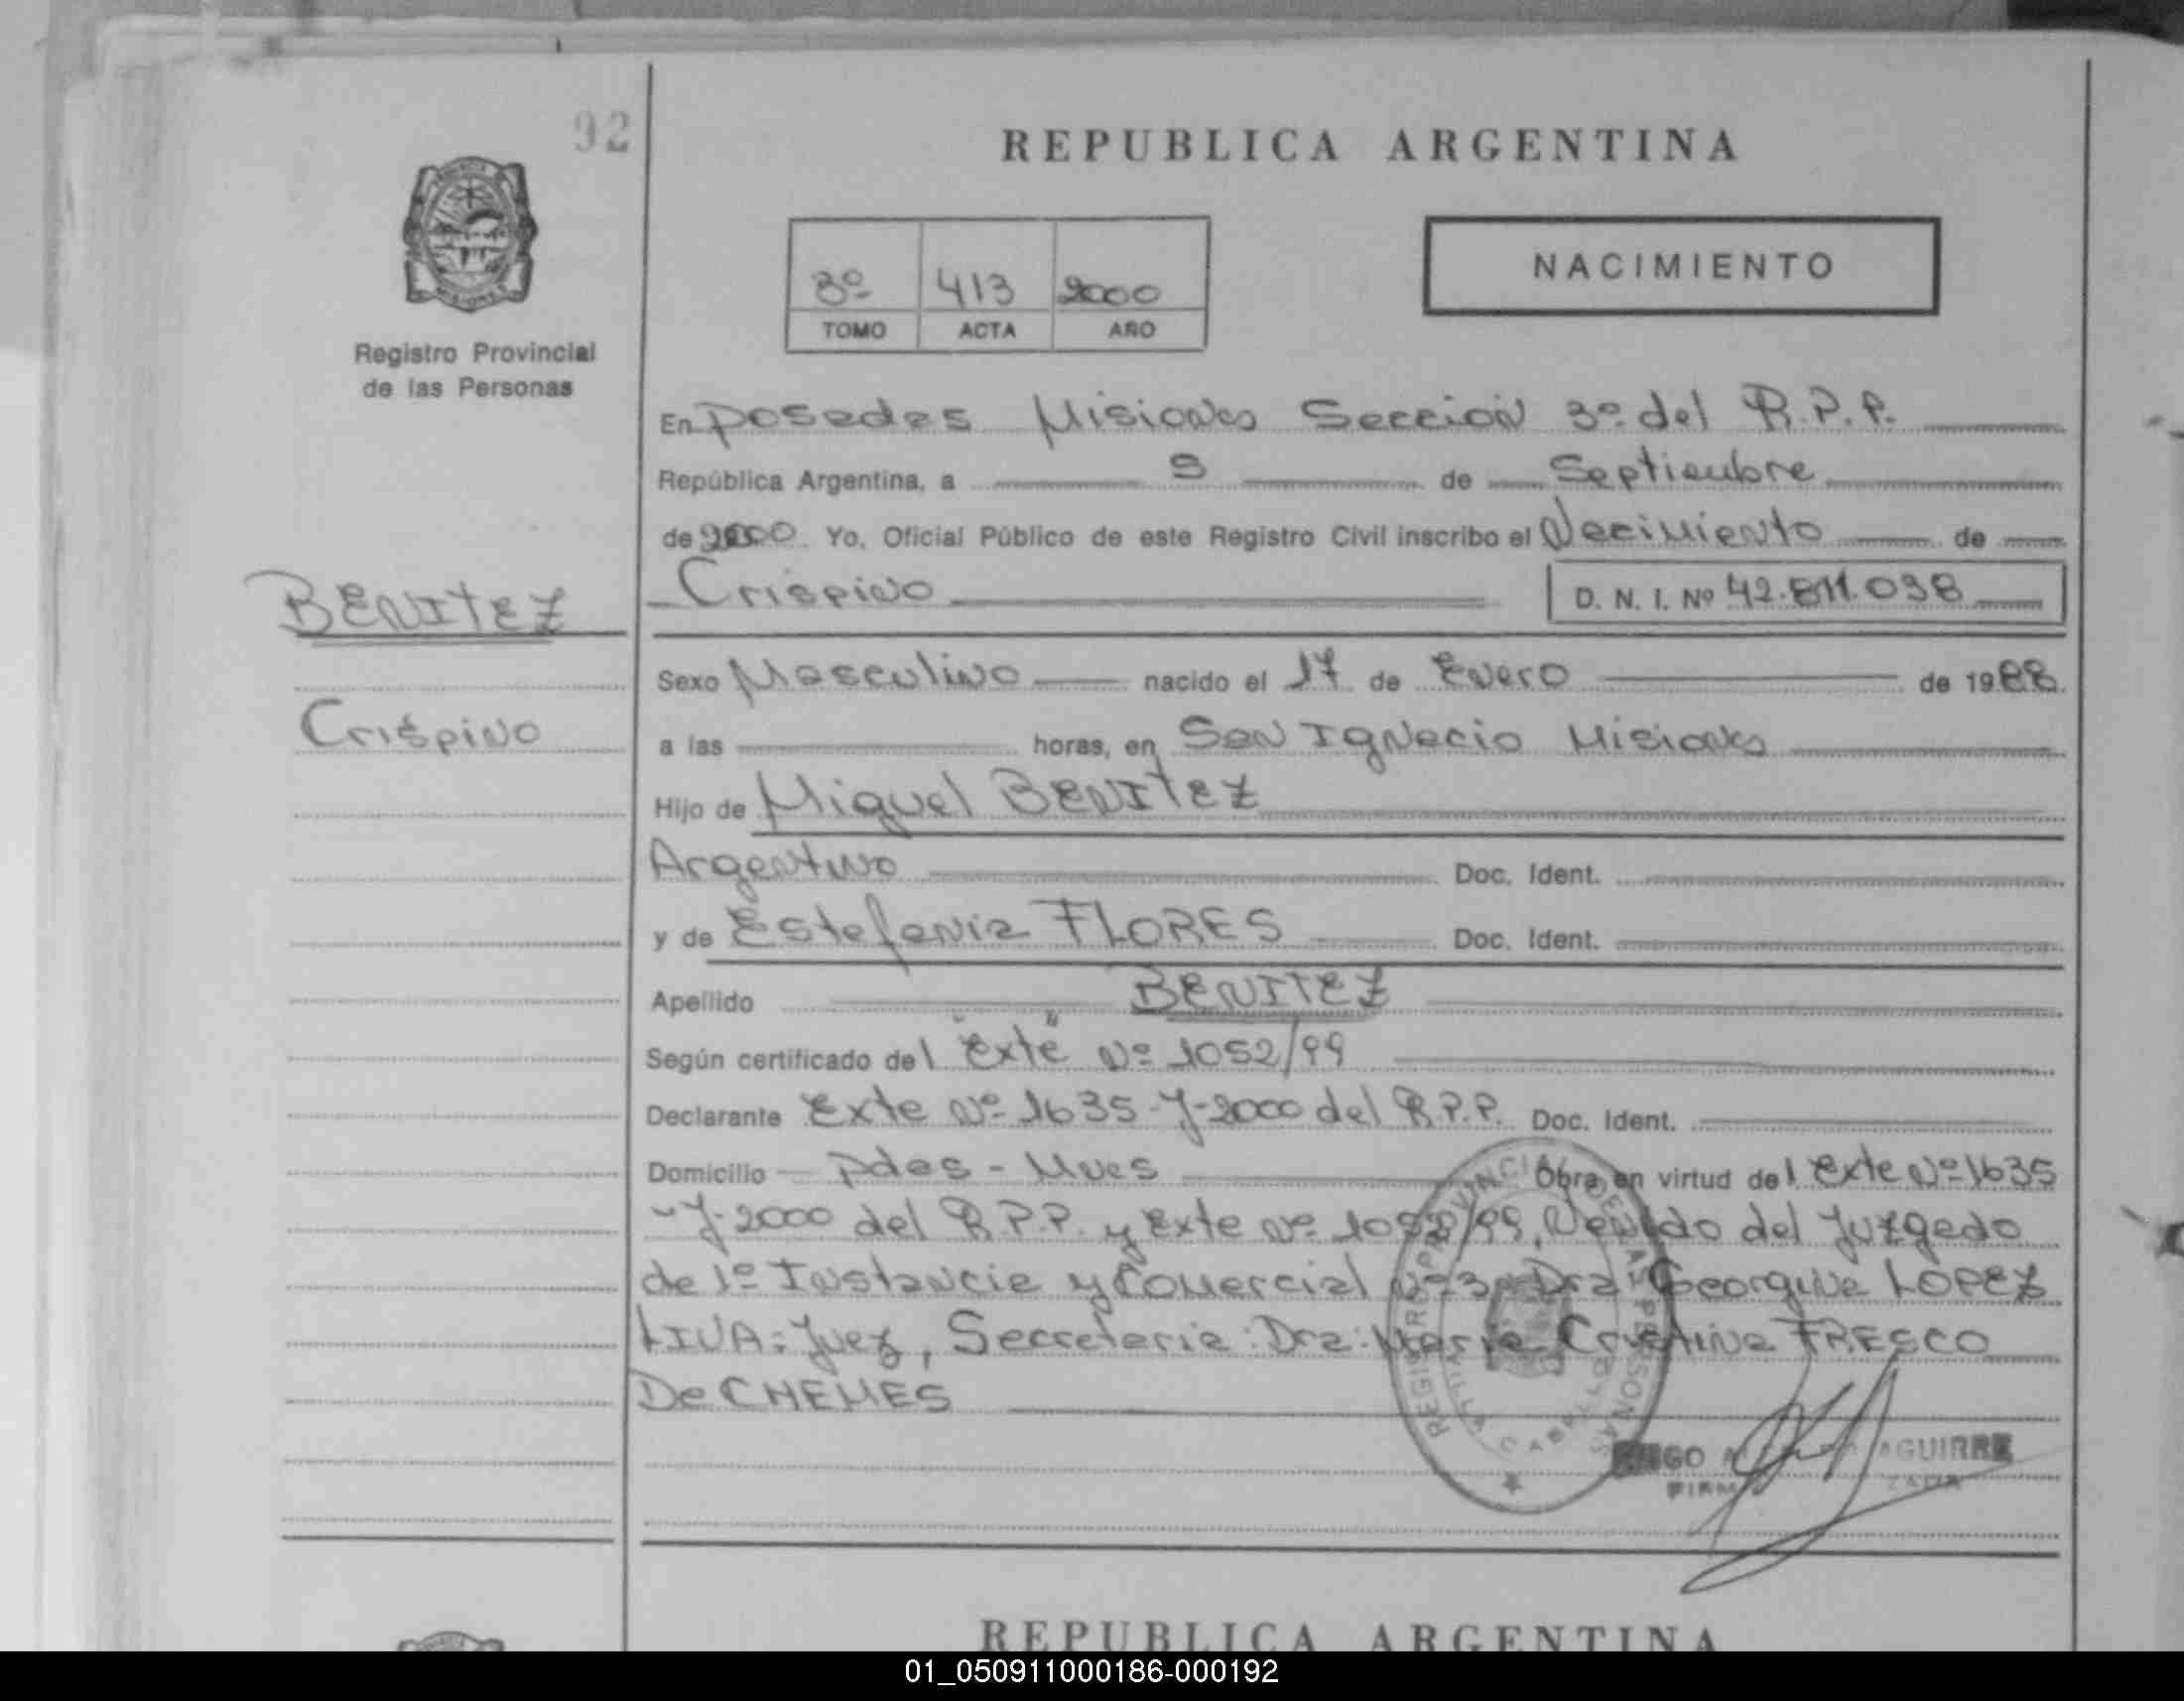 92
REPUBLICA ARGENTINA
3º 413 2000
TOMO ACTA AÑO
NACIMIENTO
Registro Provincial
de las Personas
En Posadas Misiones Sección 3º del R.P.P.
República Argentina, a 9 de Septiembre
de 2000 Yo, Oficial Público de este Registro Civil inscribo el Nacimiento de
BENITEZ
Crispino D. N. I. Nº 42.811.038
Sexo Masculino nacido el 17 de Enero de 1988
Crispino
a las horas, en San Ignacio Misiones
Hijo de Miguel BENITEZ
Argentino Doc. Ident.
y de Estefania FLORES Doc. Ident.
Apellido BENITEZ
Según certificado del "Exte" Nº 1052/99
Declarante Exte Nº 1635-J-2000 del R.P.P. Doc. Ident.
Domicilio Pdas - Mnes Obra en virtud del Exte Nº 1635
-J-2000 del R.P.P. y Exte Nº 1052/99, Venido del Juzgado
de 1º Instancia y Comercial Nº 3, Dra Georgina LOPEZ
LIVA: Juez, Secretaria: Dra: Maria Cristina FRESCO
De CHEMES
REGISTRO PROVINCIAL DE LAS PERSONAS
AGUIRRE
REPUBLICA ARGENTINA
01_050911000186-000192